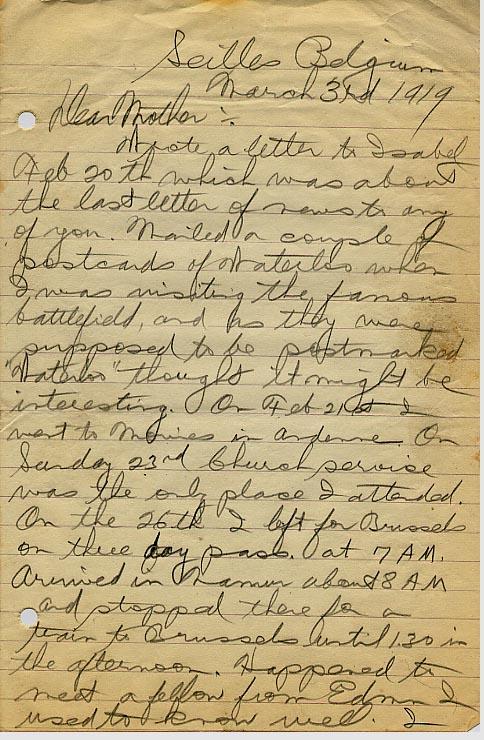 Seilles Belgium
March 3rd 1919
Dear Mother :-
Wrote a letter to Isabel
Feb 20th which was about
the last letter of news to any
of you. Mailed a couple of
postcards of Waterloo when
I was visiting the famous
battlefield, and as they were
supposed to be postmarked
"Waterloo" thought it might be
interesting. On Feb 21st I
went to Movies in Andenne. On
Sunday 23rd Church service
was the only place I attended.
On the 26th I left for Brussels
on three day pass. at 7 AM.
Arrived in Namur about 8 AM
and stopped there for a
train to Brussels until 1.30 in
the afternoon. Happened to
meet a fellow from Edmn I
used to know well. I